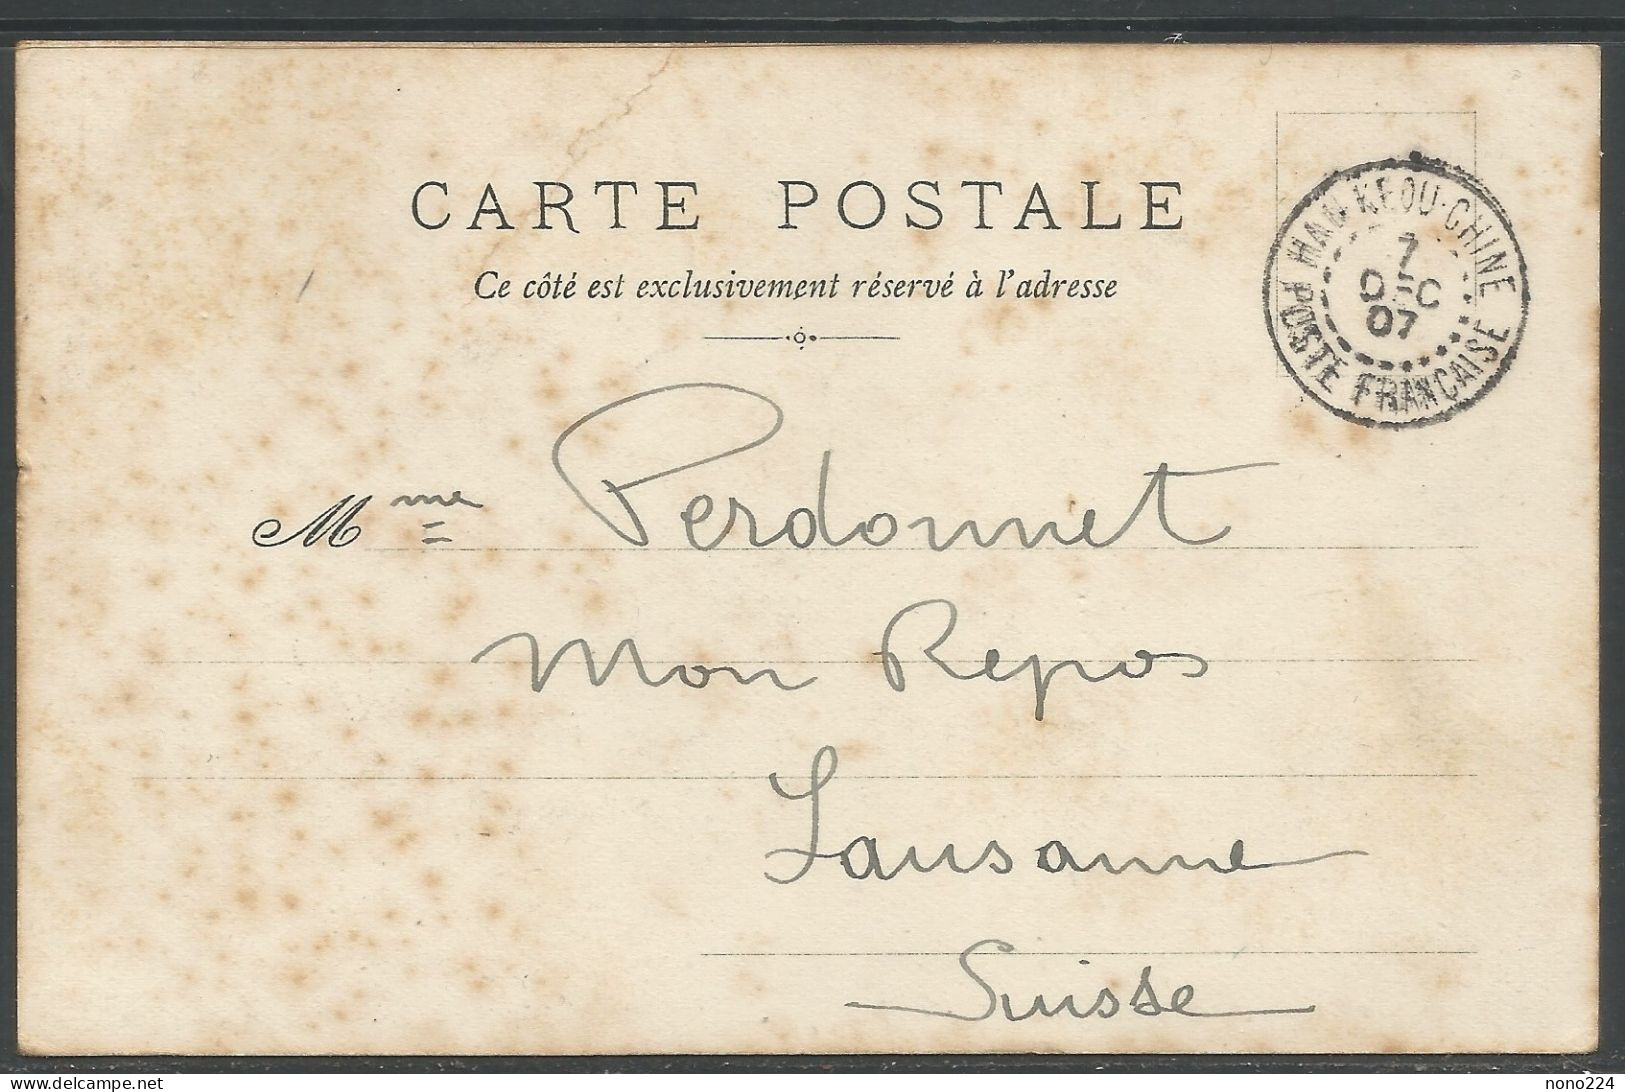 CARTE POSTALE
Ce côté est exclusivement réservé à l'adresse
HAN-KEOU-CHINE
7
DEC
07
POSTE FRANÇAISE
Mme Perdonnet
Mon Repos
Lausanne
Suisse
www.delcampe.net
nono224